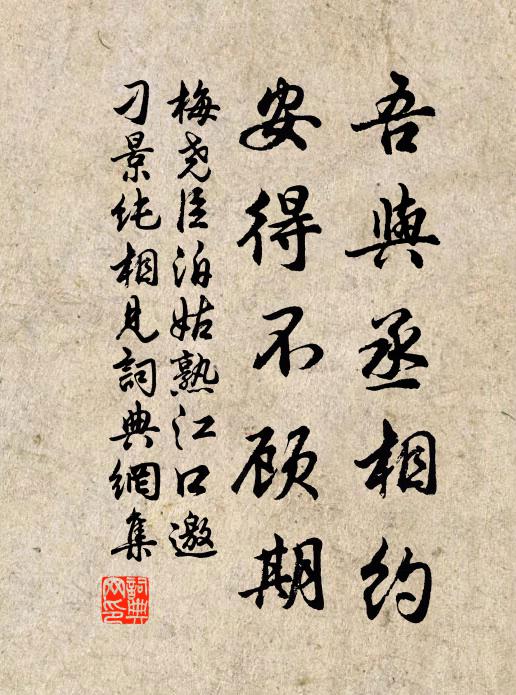 吾與丞相約
安得不顾期
梅尧臣泊姑熟江口邀
刁景纯相見詞典網集
詞典網印